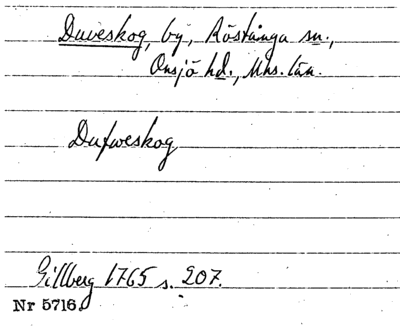 Duveskog, by, Röstånga sn.,
Onsjö hd., Mhs. län.
Dufweskog
Gillberg 1765 s. 207.
Nr 5716